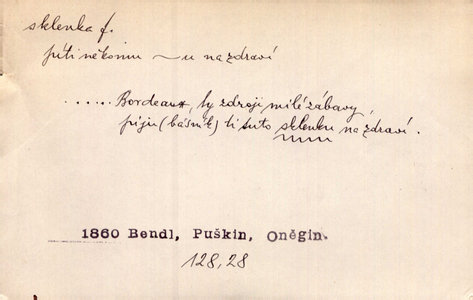 sklenka f.
píti někomu ~u na zdraví
...... Bordeaux, ty zdroji milé zábavy,
piju (básník) ti tuto sklenku na zdraví.
1860 Bendl, Puškin, Oněgin.
128, 28